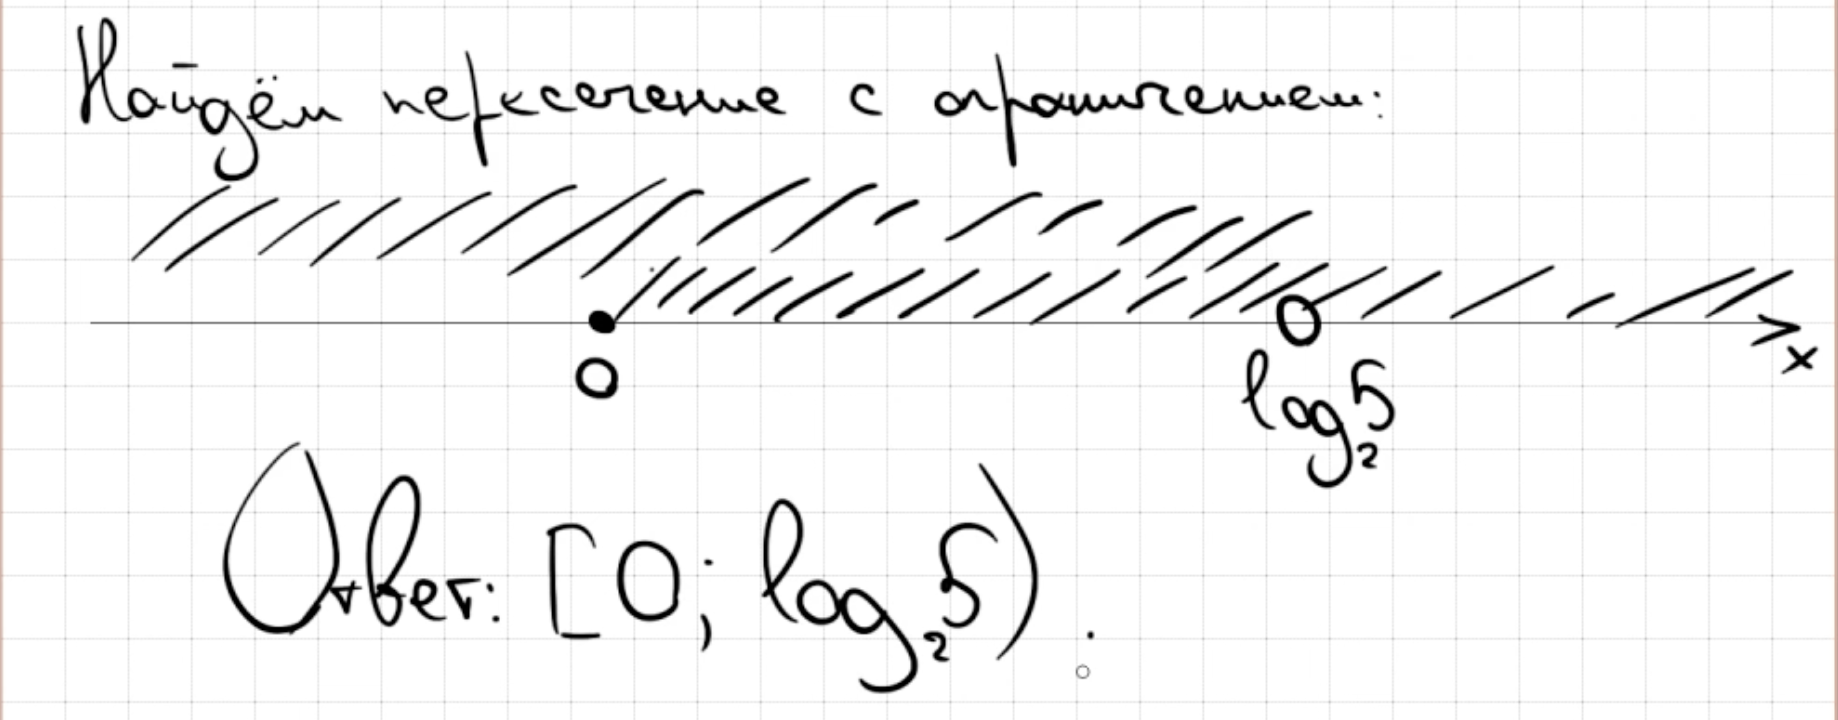 Найдём пересечение с ограничением:
0 log₂5 x
Ответ: [0; log₂5).